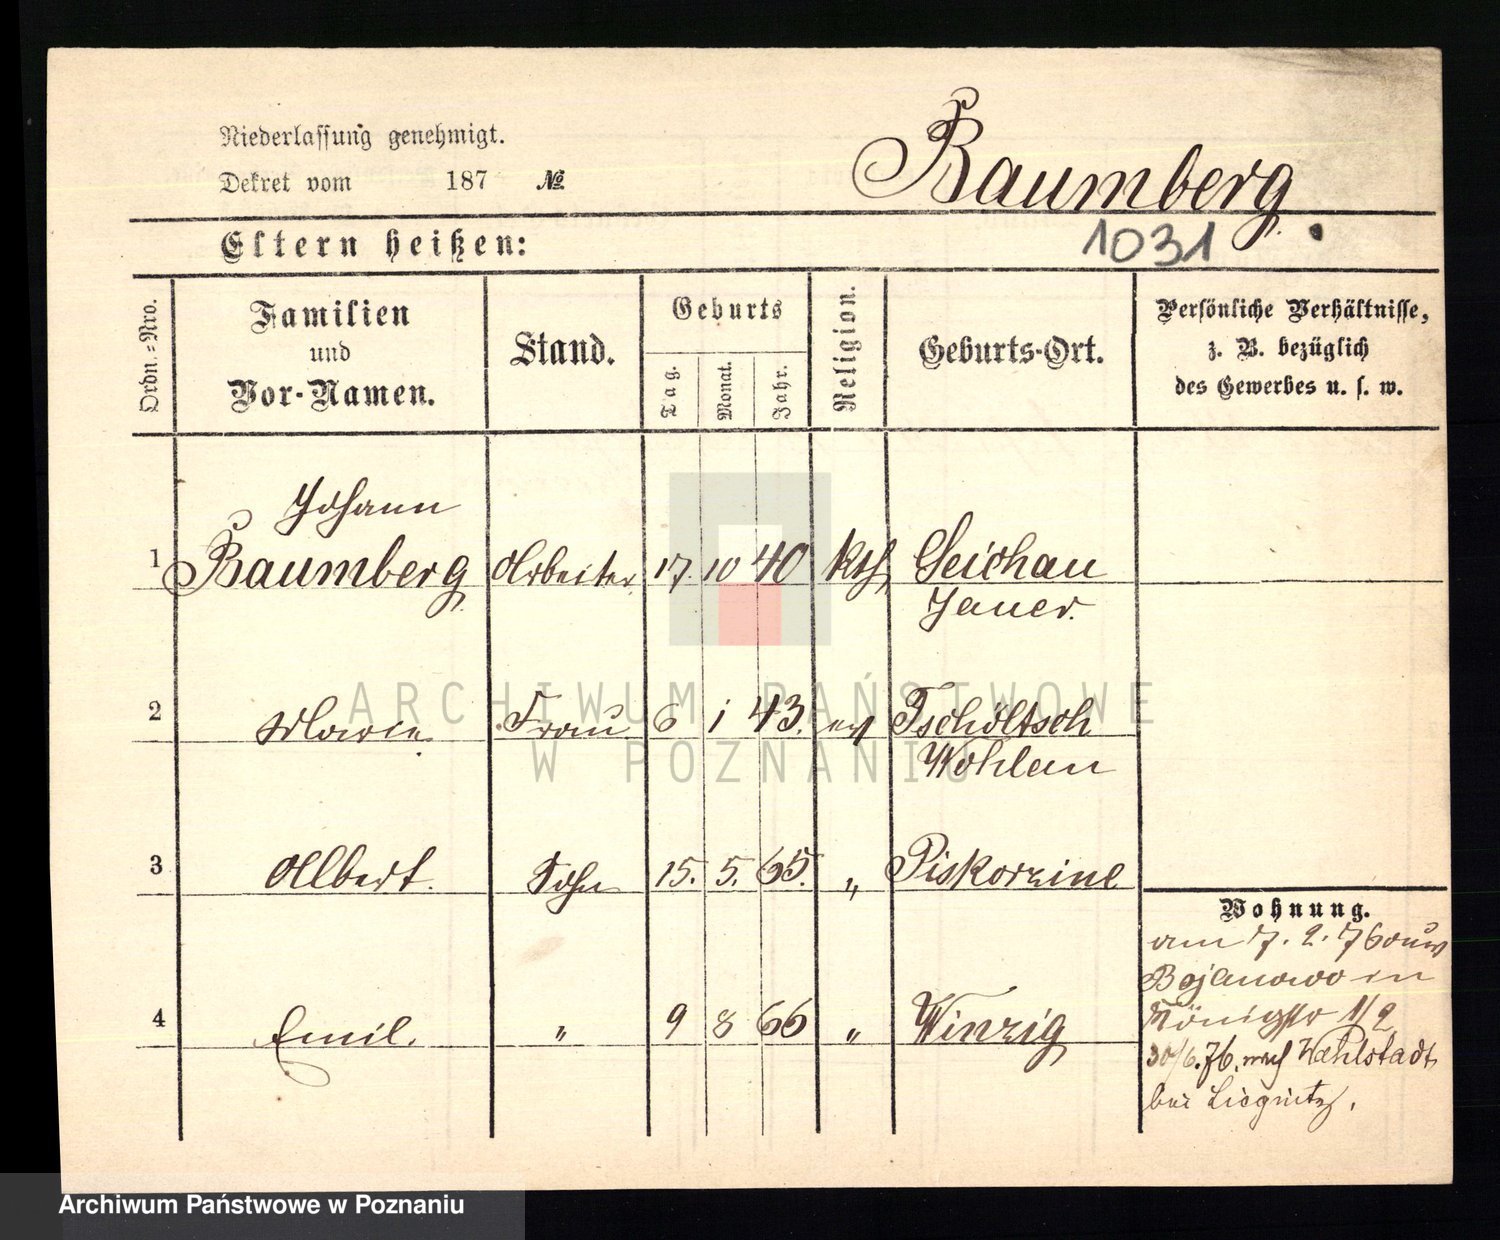 Niederlassung genehmigt.
Dekret vom 187 №
Baumberg.
1031
Eltern heißen:
Ordn.-Nro.
Familien
und
Vor-Namen.
Stand.
Geburts
Tag.
Monat.
Jahr.
Religion.
Geburts-Ort.
Persönliche Verhältnisse,
z. B. bezüglich
des Gewerbes u. s. w.
Johann
1 Baumberg Arbeiter 17. 10 40 kth Seichau
Jauer.
2 Marie Frau 6 1 43. ev Tschöltsch
Wohlau
3 Albert. Sohn 15. 5. 65. „ Piskorzine
4 Emil. „ 9 8 66 „ Winzig
Wohnung.
am 7. 2. 76 aus
Bojanowo in
Königstr 1/2
30/6.76. nach Wahlstadt
bei Liegnitz.
ARCHIWUM PAŃSTWOWE
W POZNANIU
Archiwum Państwowe w Poznaniu